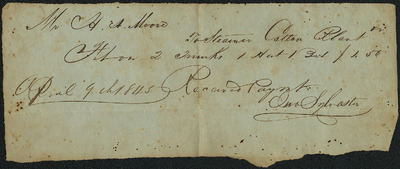 Mr A. A. Moore
To Steamer Cotton Plant Dr
2 Trunks 1 Hat 1 $1.50
April 9th 1845 Received Payment
Sylvester